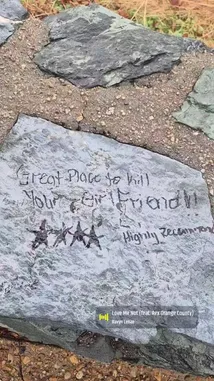 Great Place to kill
Your Girlfriend!!
★★★★
Highly Recommend
Love Me Not (feat. Rex Orange County)
Ravyn Lenae